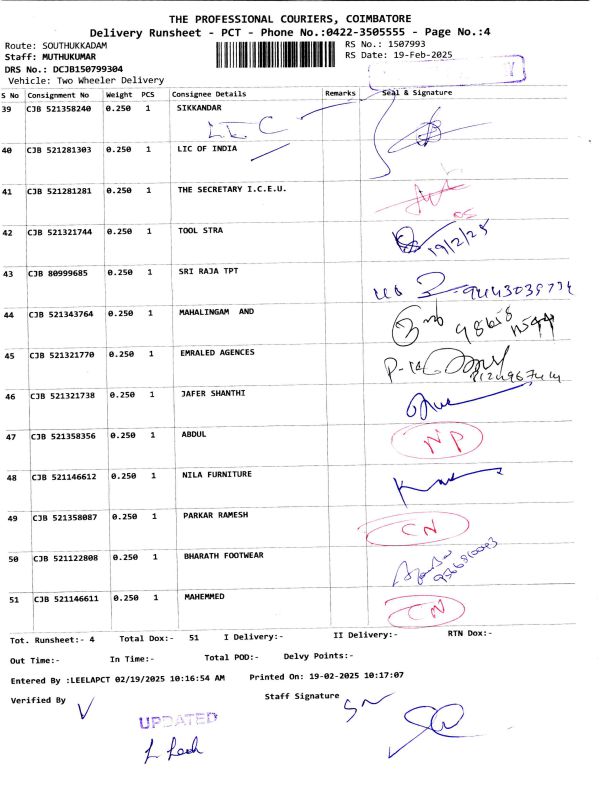 THE PROFESSIONAL COURIERS, COIMBATORE
Delivery Runsheet - PCT - Phone No.:0422-3505555 - Page No.:4
Route: SOUTHUKKADAM RS No.: 1507993
Staff: MUTHUKUMAR RS Date: 19-Feb-2025
DRS No.: DCJB150799304
Vehicle: Two Wheeler Delivery
S No Consignment No Weight PCS Consignee Details Remarks Seal & Signature
39 CJB 521358240 0.250 1 SIKKANDAR
LIC
40 CJB 521281303 0.250 1 LIC OF INDIA
41 CJB 521281281 0.250 1 THE SECRETARY I.C.E.U.
42 CJB 521321744 0.250 1 TOOL STRA 19/2/25
43 CJB 80999685 0.250 1 SRI RAJA TPT
44 CJB 521343764 0.250 1 MAHALINGAM AND
45 CJB 521321770 0.250 1 EMRALED AGENCES
46 CJB 521321738 0.250 1 JAFER SHANTHI
47 CJB 521358356 0.250 1 ABDUL NP
48 CJB 521146612 0.250 1 NILA FURNITURE
49 CJB 521358087 0.250 1 PARKAR RAMESH CN
50 CJB 521122808 0.250 1 BHARATH FOOTWEAR
51 CJB 521146611 0.250 1 MAHEMMED CN
Tot. Runsheet:- 4 Total Dox:- 51 I Delivery:- II Delivery:- RTN Dox:-
Out Time:- In Time:- Total POD:- Delvy Points:-
Entered By :LEELAPCT 02/19/2025 10:16:54 AM Printed On: 19-02-2025 10:17:07
Verified By Staff Signature
UPDATED